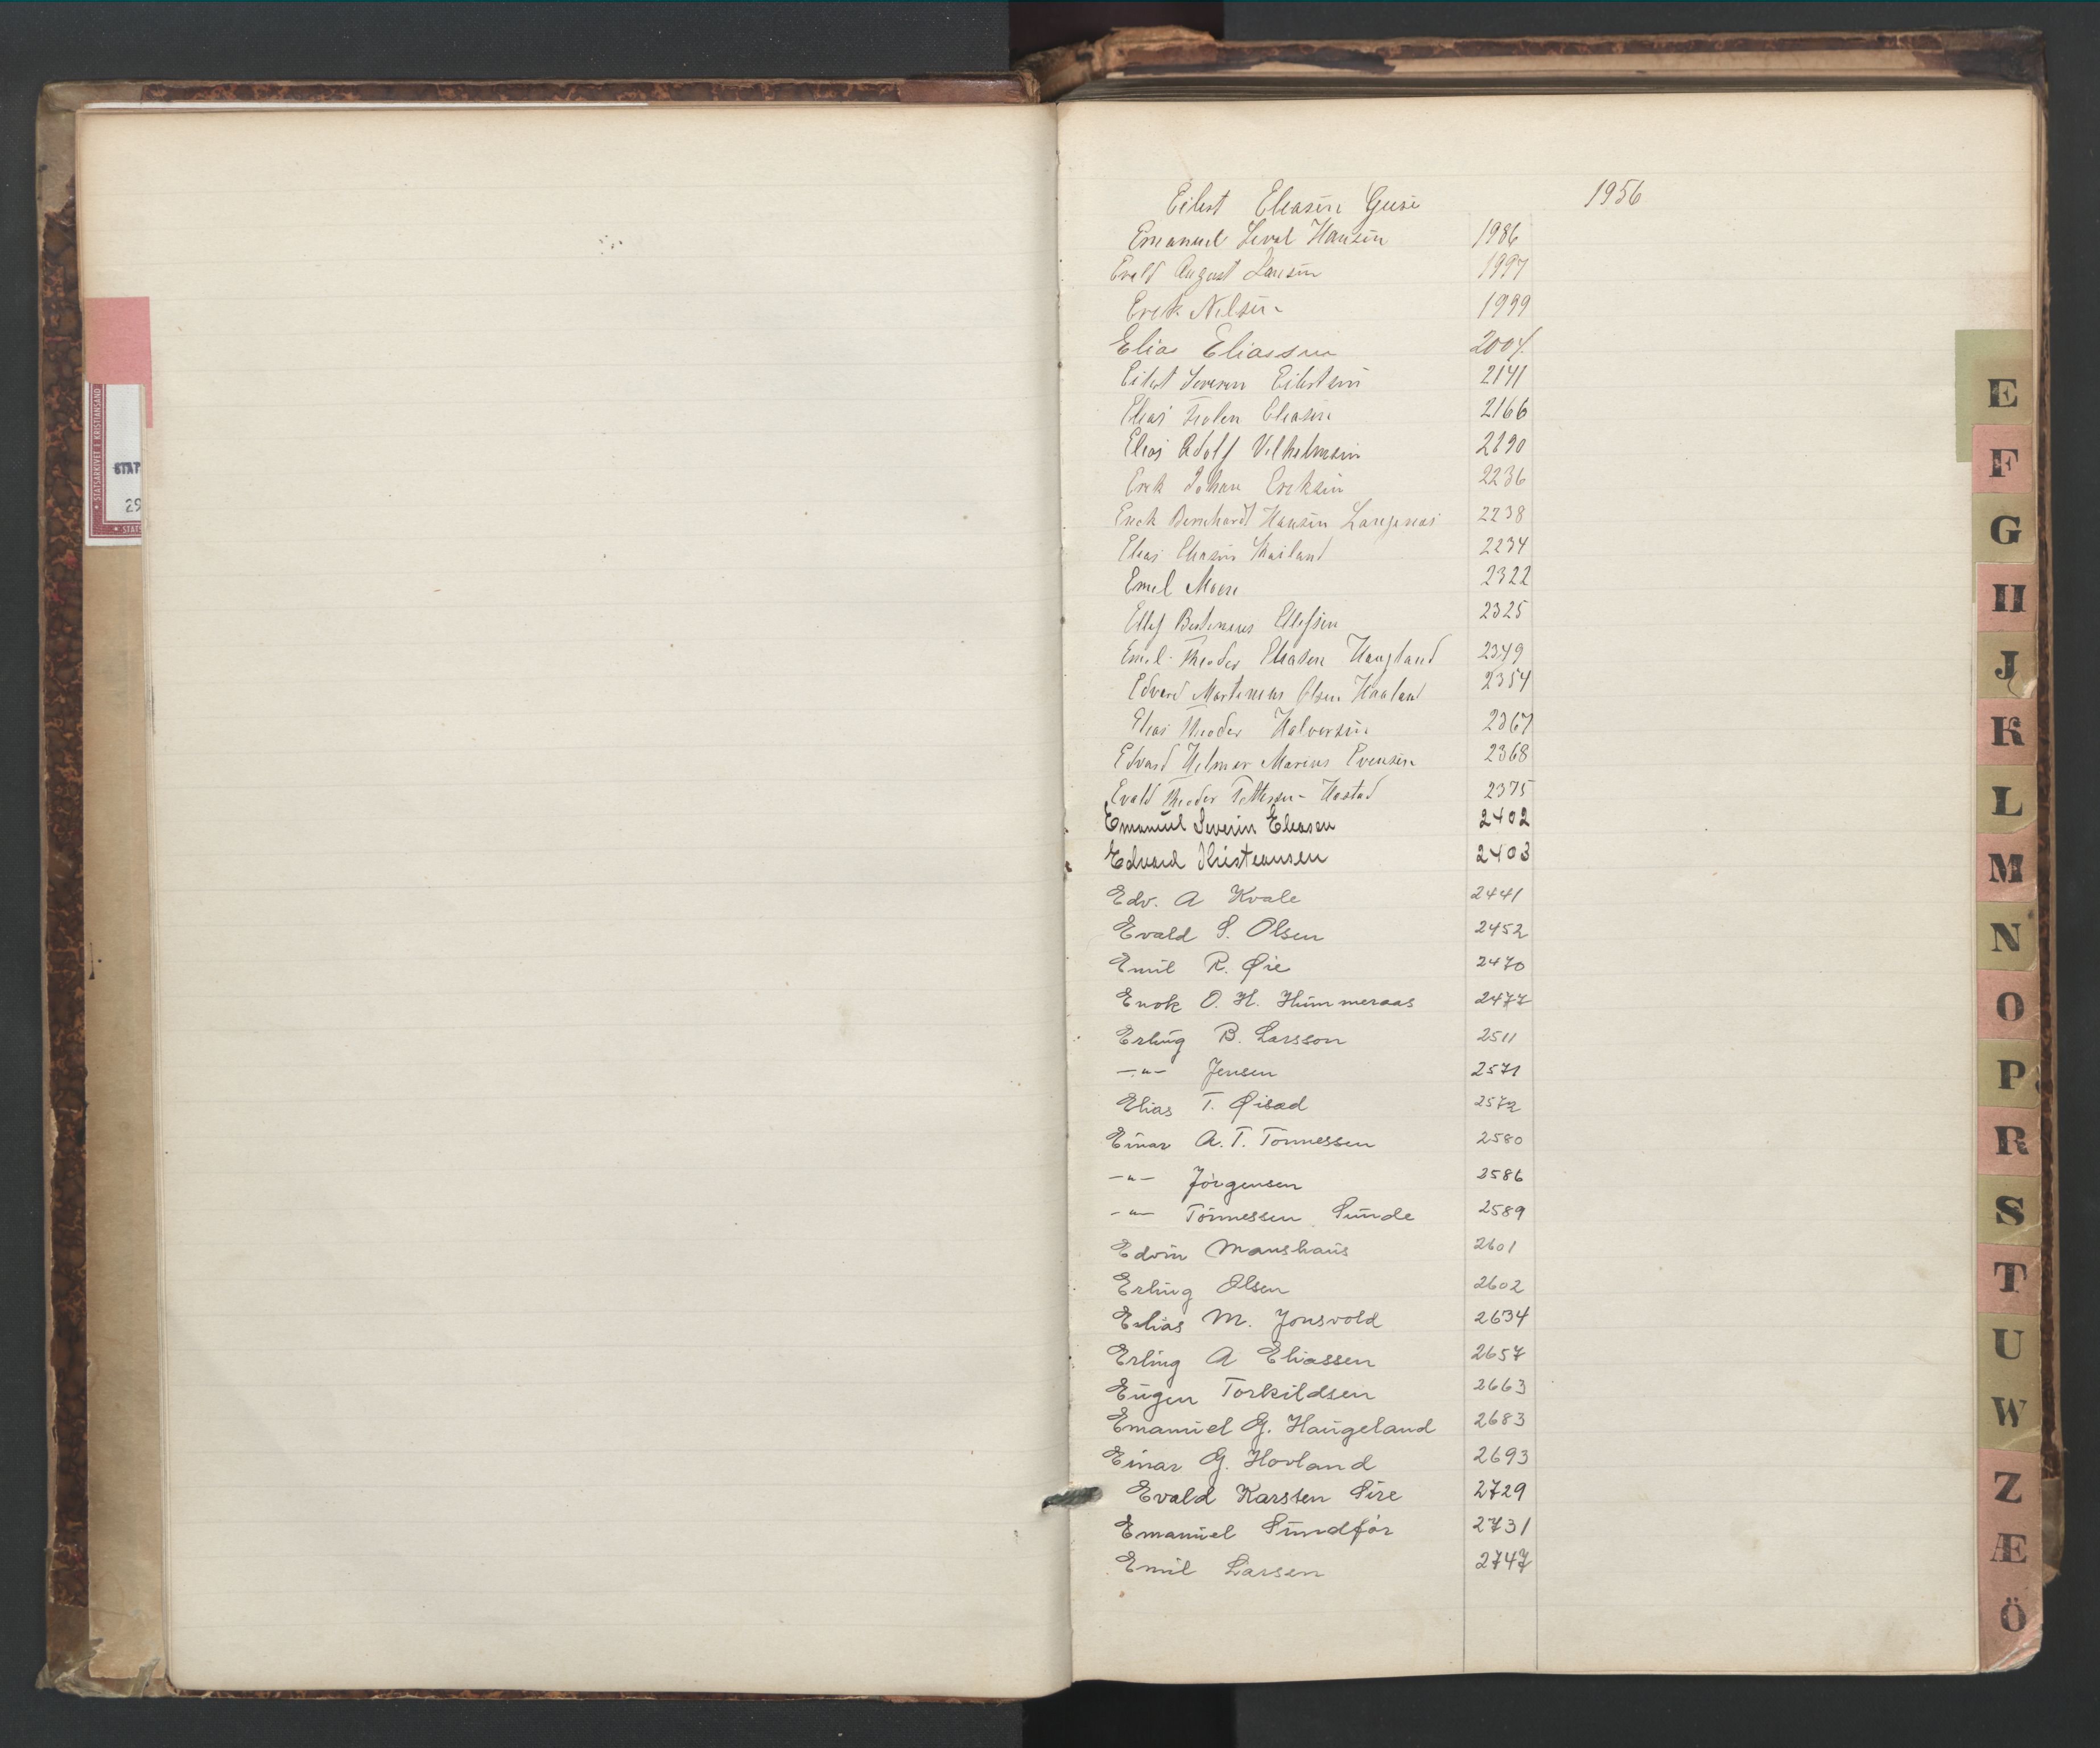 STATSARKIVET I KRISTIANSAND
STAT
29
STATS
Eilert Eliasen Gusi 1956
Emanuel Hansen 1986
Evald August Larsen 1997
Erek Nilsen 1999
Elias Eliassen 2004
Eilert Severin Eilertsen 2141
Elias Eliasen 2166
Elias Adolf Vilhelmsen 2190
Erek Johan Ereksen 2236
Enok Bernhard Hansen Langenes 2238
Elias Eliasen 2234
Emil Moen 2322
Ellef Ellefsen 2325
Emil Theodor Eliasen Haugland 2349
Edvard Martinius Olsen Haaland 2354
Elias Theodor Halvorsen 2367
Edvard Helmer Marius Evensen 2368
Evald Theodor Hestad 2375
Emanuel Severin Eliasen 2402
Edvard Kristeansen 2403
Edv. A Kvale 2441
Evald S. Olsen 2452
Emil R. Øie 2470
Enok O. H. Hummeraas 2477
Erling B. Larsson 2511
—„— Jensen 2571
Elias T. Øisad 2572
Einar A. T. Tønnessen 2580
—„— Jørgensen 2586
—„— Tønnessen Sunde 2589
Edvin Manshaus 2601
Erling Olsen 2602
Elias M. Jonsvold 2634
Erling A Eliassen 2657
Eugen Torkildsen 2663
Emanuel G. Haugeland 2683
Einar G. Hovland 2693
Evald Karsten Sire 2729
Emanuel Sundfør 2731
Emil Larsen 2747
E
F
G
H
J
K
L
M
N
O
P
R
S
T
U
W
Z
Æ
Ö